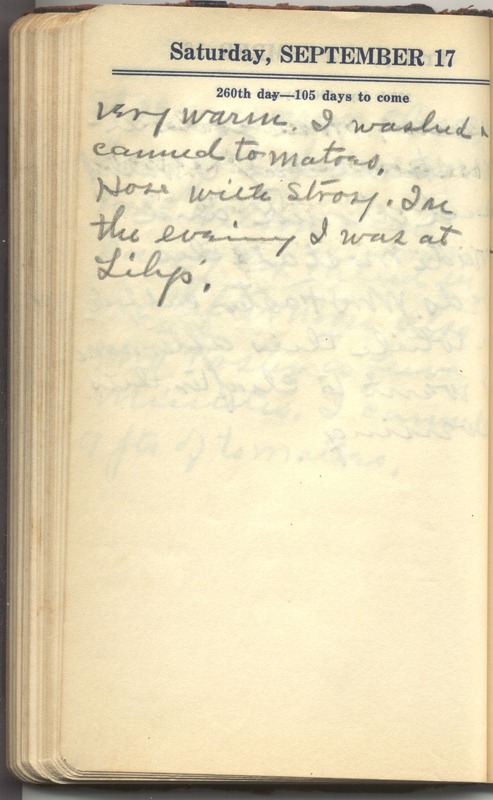 Saturday, SEPTEMBER 17
260th day—105 days to come
very warm. I washed &
canned tomatoes.
with Strong. In
the evening I was at